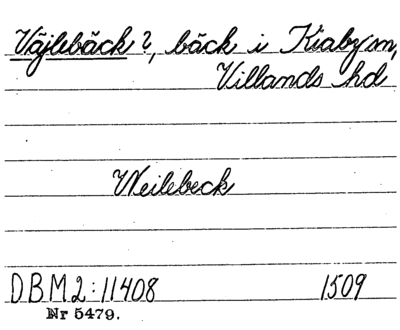 Väjlebäck?, bäck i Kiaby sn,
Villands hd
Weilebeck
DBM2:11408 1509
Nr 5479.